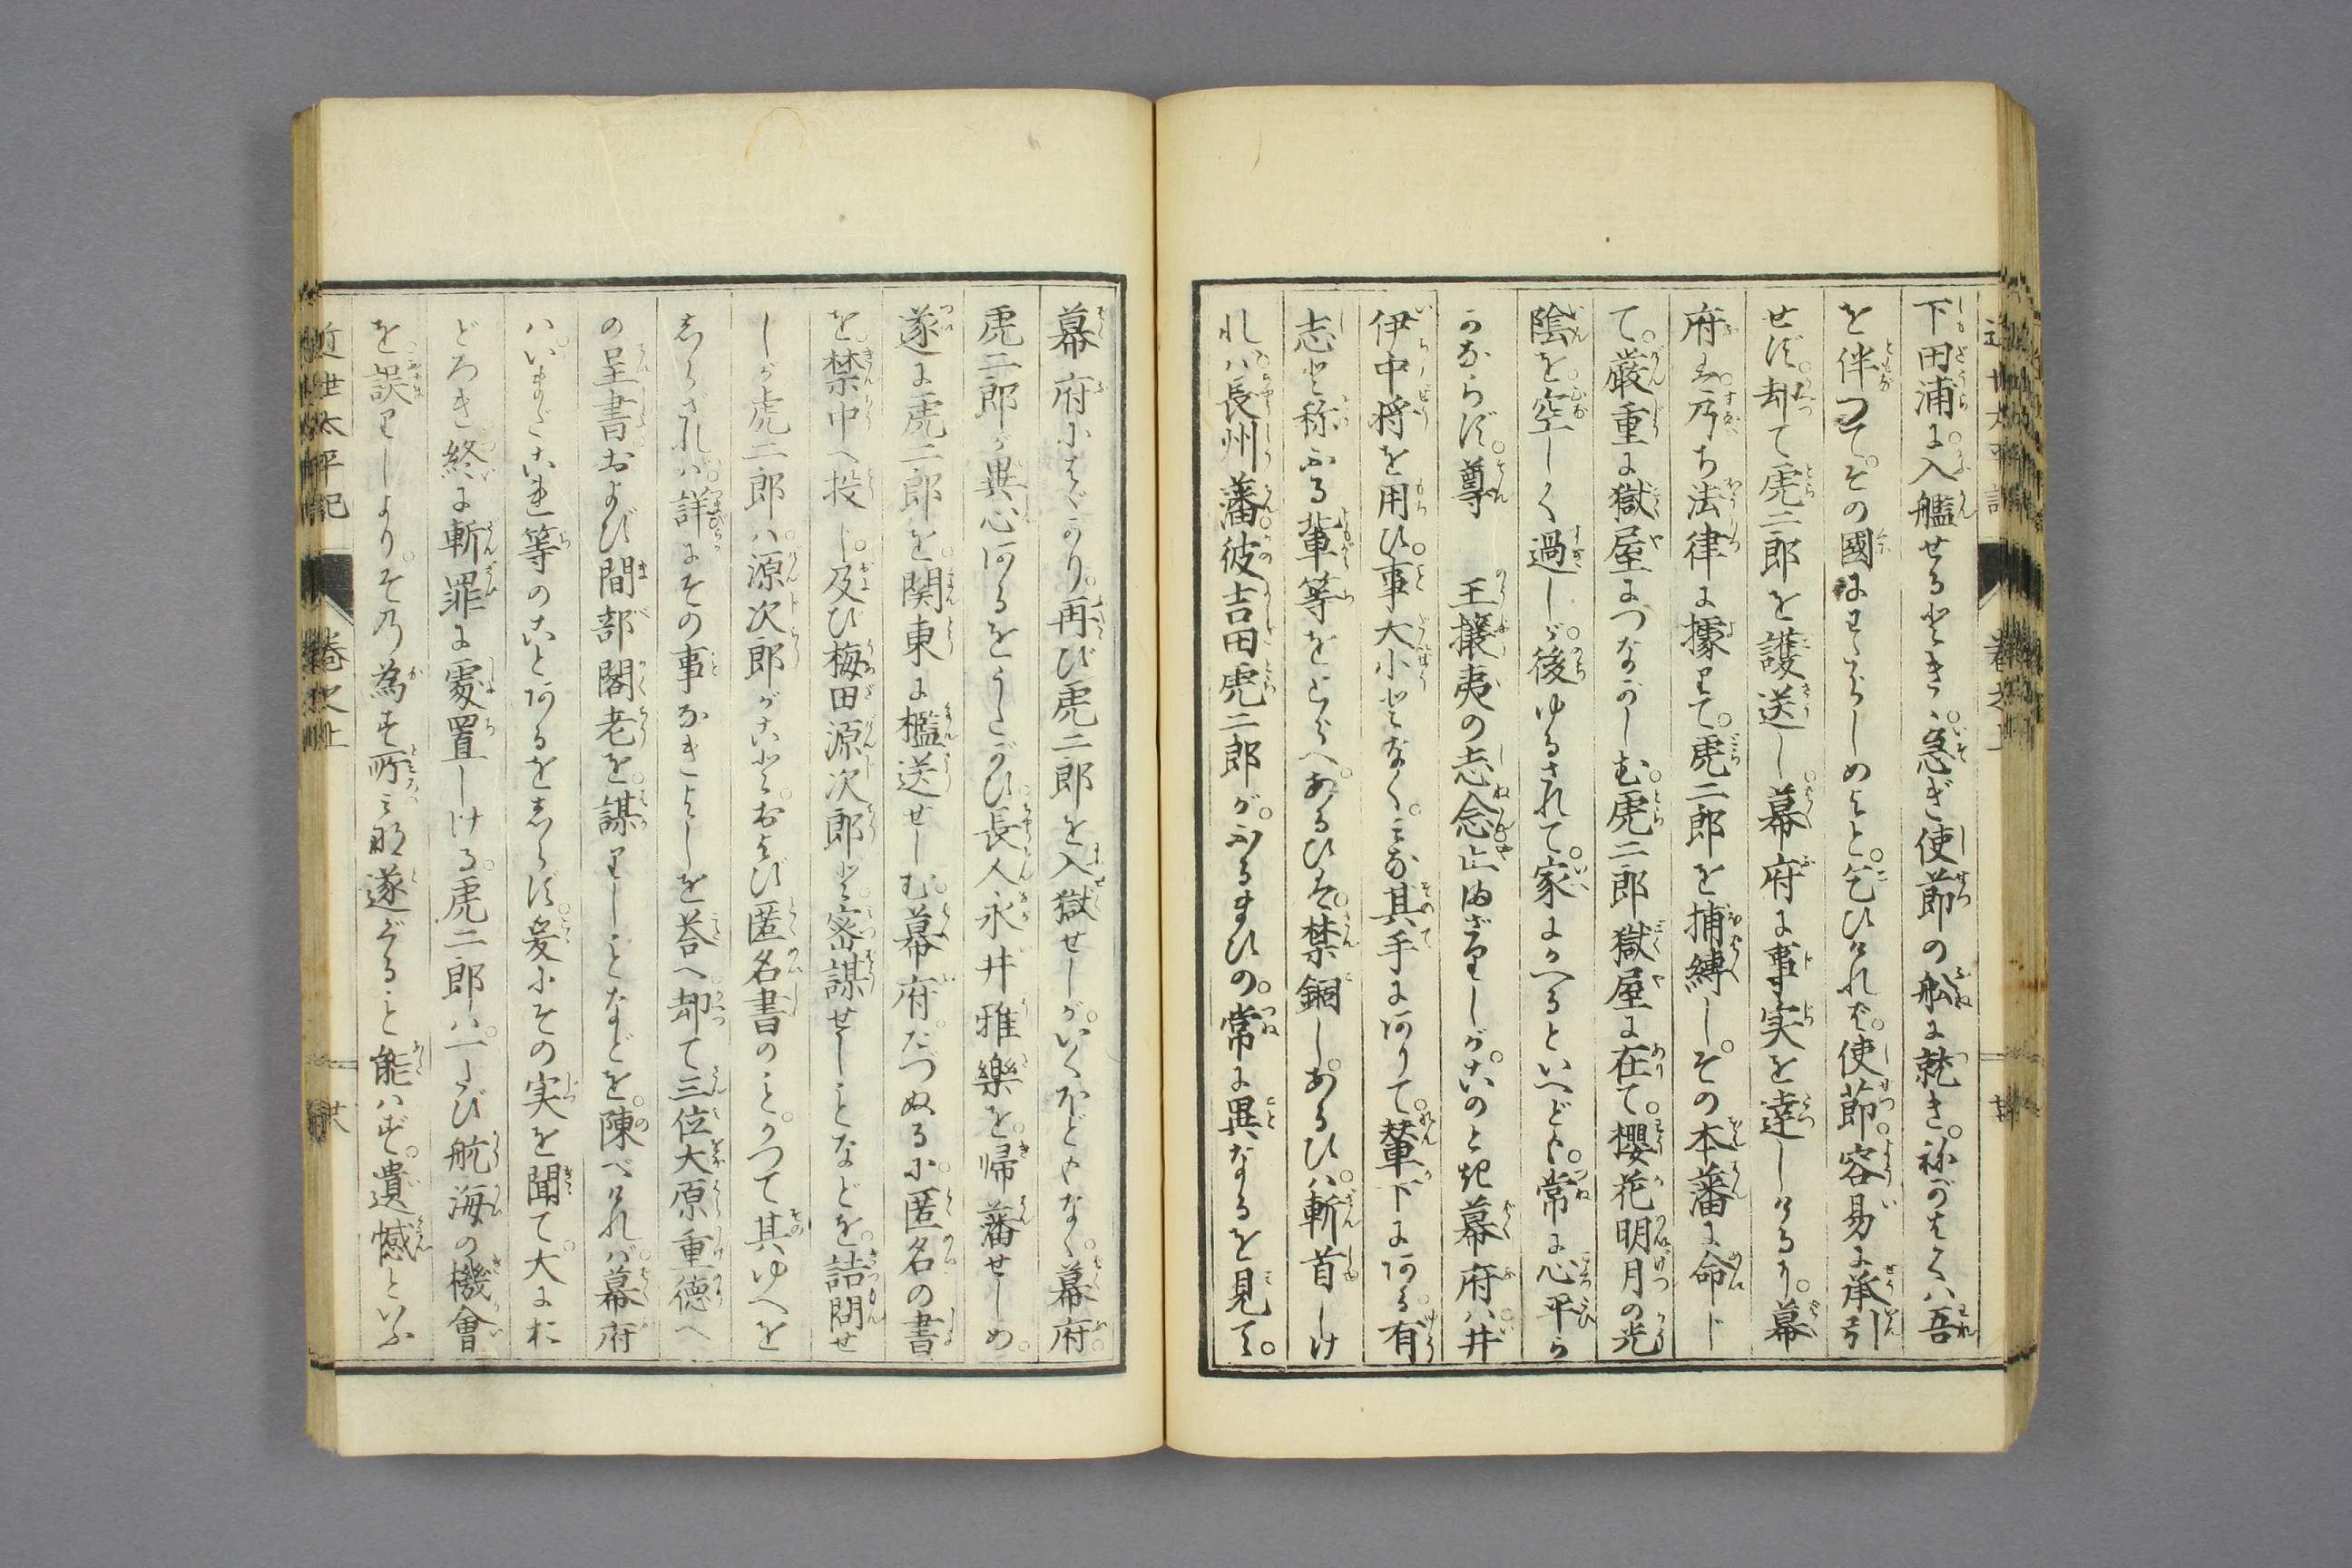 下田浦に入艦せるとき、急ぎ使節の舩に就き。祢がはくハ吾
を伴つて。その國にわたらしめよと。乞ひけれど。使節容易に承引
せず。却て虎二郎を護送し。幕府に事実を達しけるり。幕
府も。乃ち法律に據りて。虎二郎を捕縛し。その本藩に命じ
て。厳重に獄屋につながしむ。虎二郎獄屋に在て。櫻花明月の光
陰を。空しく過しが。後ゆるされて。家にかへるといへども。常に心平ら
かならず。尊 王攘夷の志念止まざりしが。このとき幕府ハ井
伊中将を用ひ。事大小となく。みな其手にありて。輦下にある。有
志と称ふる輩等をとらへ。あるひは。禁錮し。あるひハ。斬首しけ
れハ。長州藩彼吉田虎二郎が。ふるまひの。常に異なるを見て。
幕府にはゞかり。再び虎二郎を入獄せしが。いくほどもなく。幕府。
虎二郎が異心あるをうたがひ。長人永井雅樂を。帰藩せしめ。
遂に虎二郎を。関東に檻送せしむ。幕府。たづぬるに。匿名の書
を。禁中へ投じ。及び梅田源次郎と。密謀せしことなどを。詰問せ
しが虎二郎ハ。源次郎がこと。および匿名書のこと。かつて其ゆへを
しらざれハ。詳にその事なきよしを答へ。却て三位大原重徳へ
の呈書および間部閣老を。謀りしことなどを。陳べけれバ。幕府
ハ。いまだこれ等のことあるをしらず。爰にその実を聞て。大にお
どろき。終に斬罪に處置しける。虎二郎ハ。一たび航海の機會
を。誤りしより。その為す所みな遂ぐること能ハず。遺憾といふ
近世太平記 巻次上